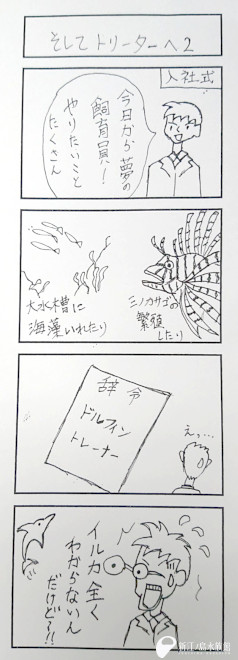 そしてトリーターへ2
入社式
今日から夢の
飼育員!
やりたいこと
たくさん
大水槽に
海藻いれたり
ミノカサゴの
繁殖
したり
辞令
ドルフィン
トレーナー
えっ…
イルカ全く
わからないん
だけど〜!!
新江ノ島水族館